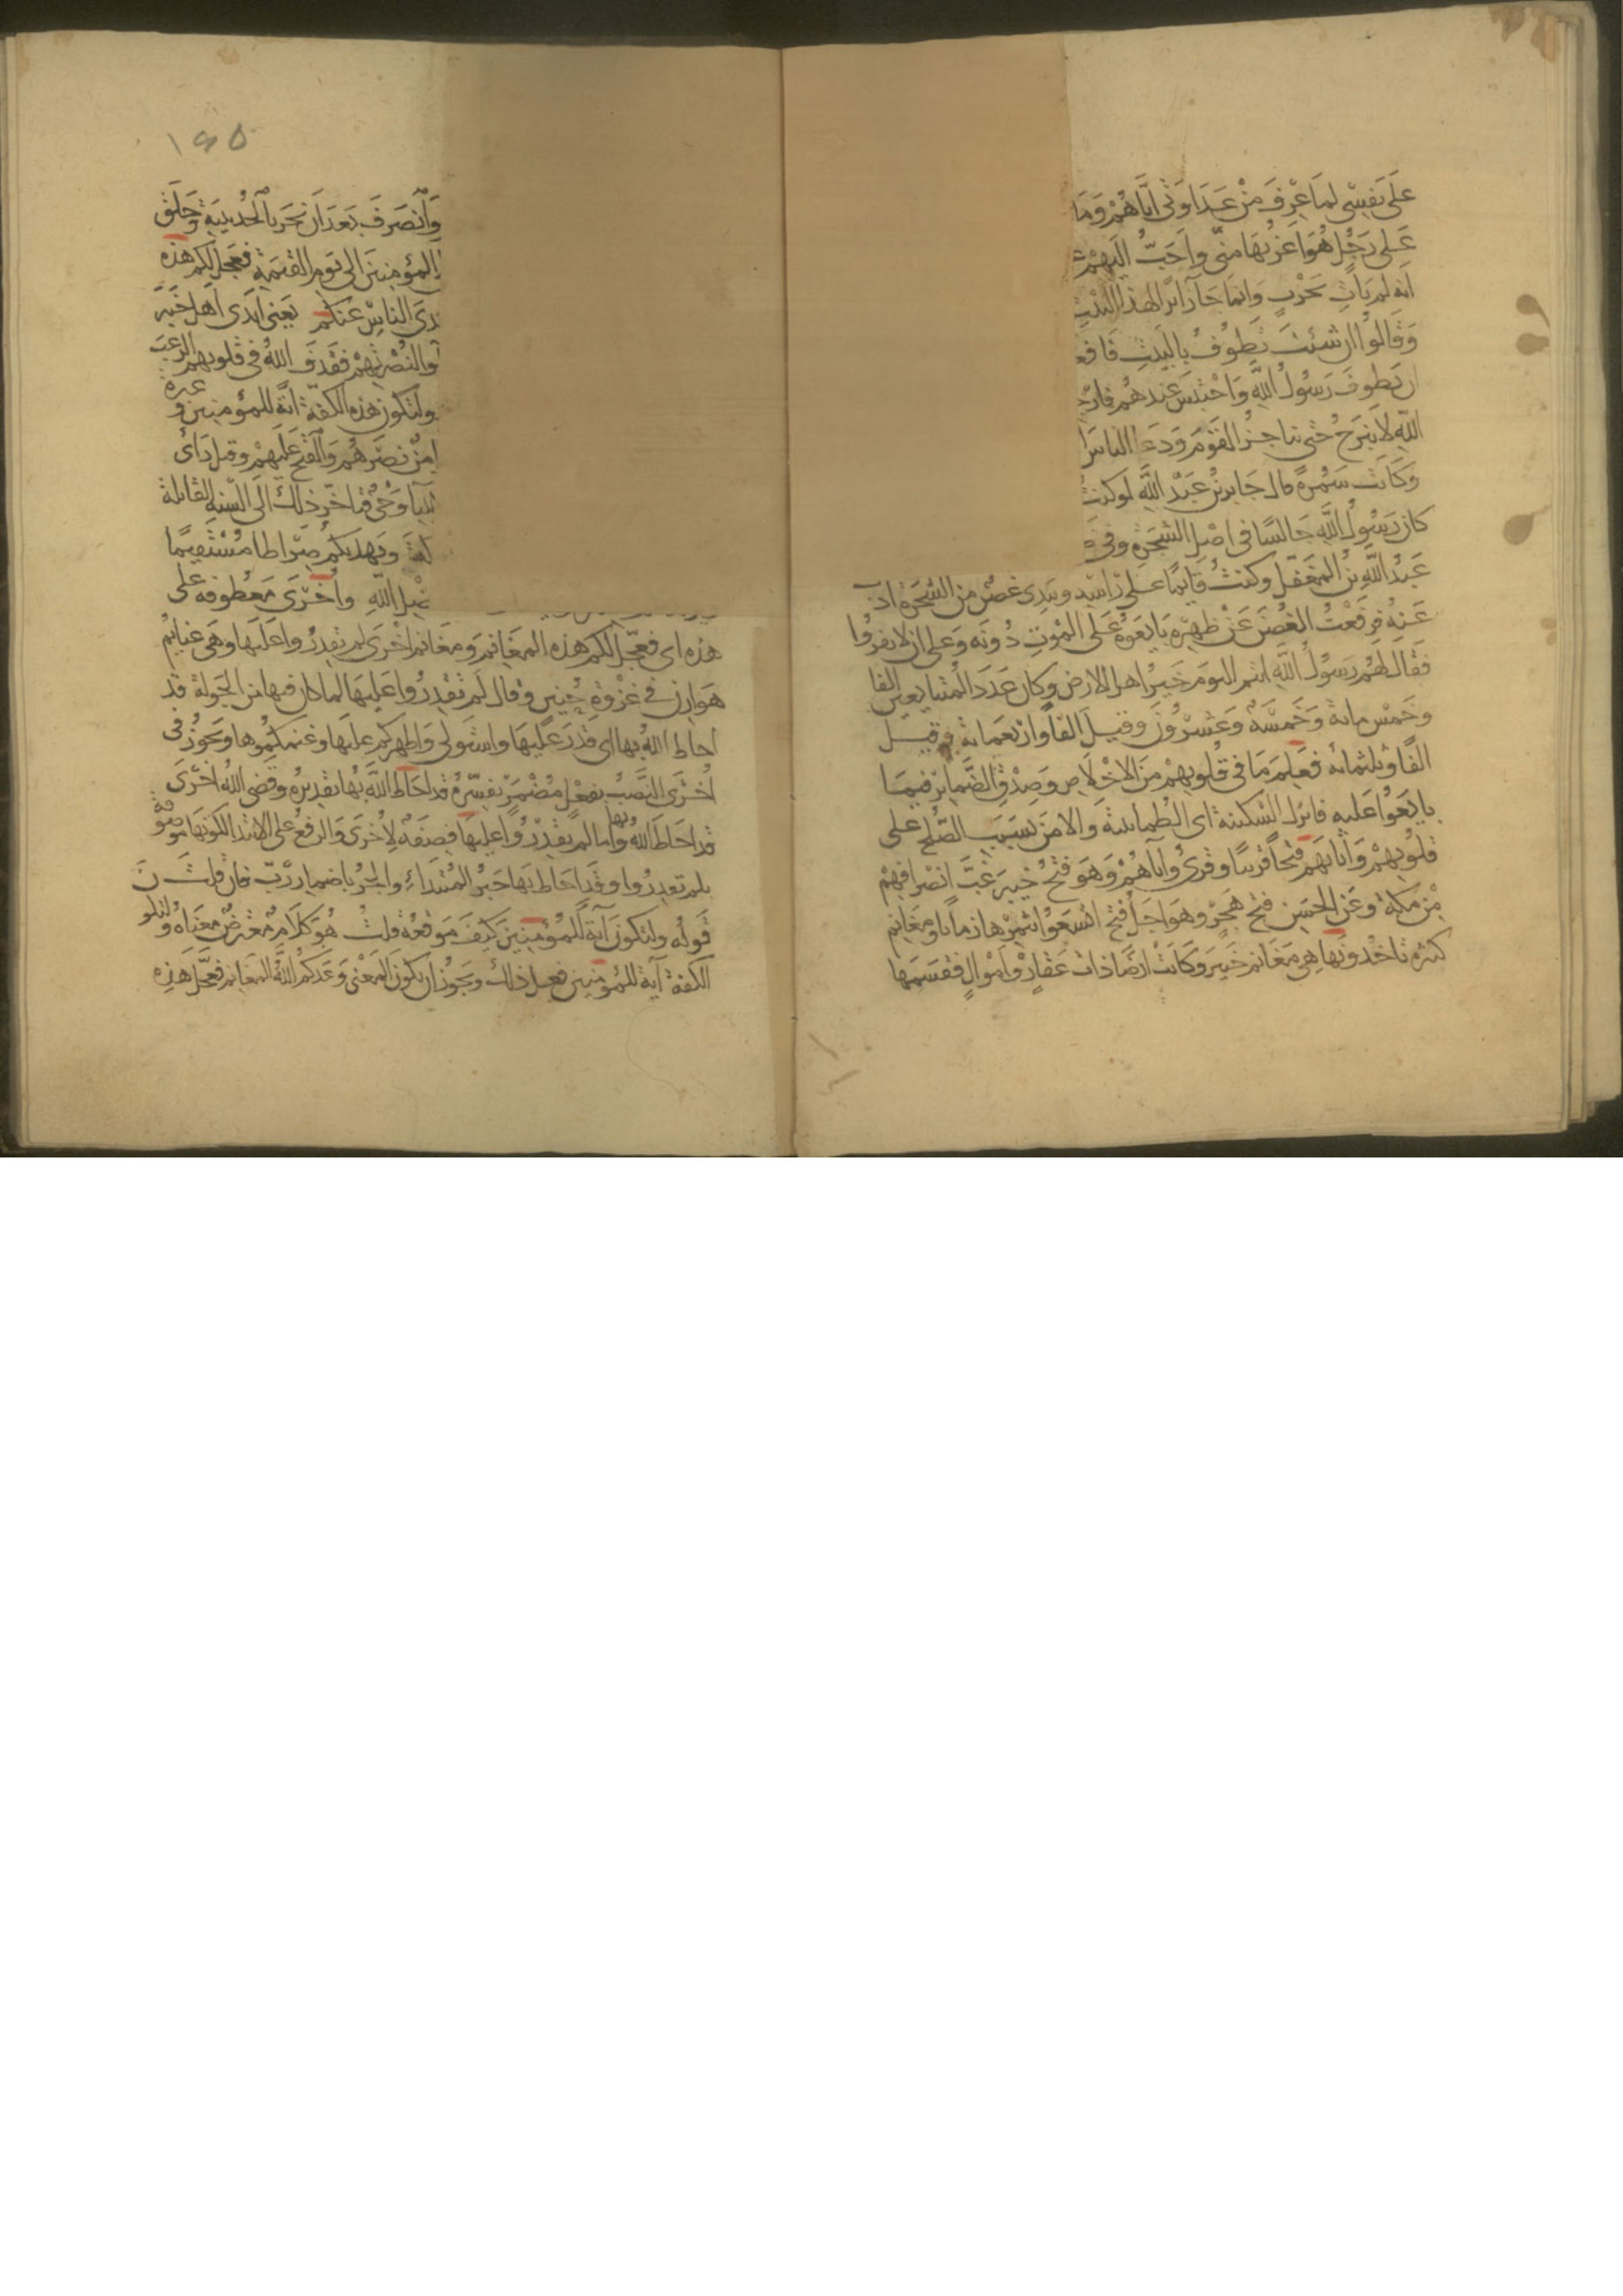 على نفسي لما عرف من عداوتى اياهم وما
على رجل هو اعز بها منى واحب اليهم
انه لم يات بحرب وانما جا زائرا لهذا البيت
وقالوا ان شئت تطوف بالبيت فافعل
ان يطوف رسول الله واحتبس عندهم فارج
الله لا نبرح حتى نناجز القوم ودعا الناس
وكانت سمرة قال جابر بن عبد الله لو كنت
كان رسول الله جالسا فى اصل الشجره وفى
عبد الله بن المغفل وكنت قايما على راسه وبيدى غصن من الشجرة اذب
عنه فرفعت الغصن عن ظهره بايعوه على الموت دونه وعلى ان لا يفروا
فقال لهم رسول الله انتم اليوم خير اهل الارض وكان عدد المتبايعين الفا
وخمس مائة وخمسة وعشرون وقيل الفا واربعمائة وقيل
الفا وثلثمائة فعلم ما فى قلوبهم من الاخلاص وصدق الضماير فيما
بايعوا عليه فانزل السكينة اى الطمانينة والامن بسبب الصلح على
قلوبهم واثابهم فتحا قريبا وقرئ واتاهم وهو فتح خيبر غب انصرافهم
من مكة وعن الحسن فتح هجر وهو اجل فتح اتسعوا بثمرها زمانا ومغانم
كثيره تاخذونها هى مغانم خيبر وكانت ارضا ذات عقار واموال فقسمها
١٩٥
وانصرف بعد ان نحر بالحديبية وحلق
المؤمنين الى يوم القيمة فعجل لكم هذه
دى الناس عنكم يعنى ايدى اهل خيبر
والنصرتهم فقذف الله فى قلوبهم الرعب
ولتكون هذه الكفة اية للمؤمنين وعبرة
من نصرهم والفتح عليهم وقيل راى
وحى فتاخر ذلك الى السنة القابلة
ويهديكم صراطا مستقيما
الله واخرى معطوفه على
هذه اى فعجل لكم هذه المغانم ومغانم اخرى لم تقدروا عليها وهى غنايم
هوازن فى غزوة حنين وقال لم تقدروا عليها لما كان فيها من الجولة قد
احاط الله بها اى قدر عليها واستولى واظهركم عليها وغنمكموها ويجوز فى
اخرى النصب بفعل مضمر يفسره قد احاط الله بها تقديره وقضى الله اخرى
قد احاط الله بها واما لم تقدروا عليها فصفة لاخرى والرفع على الابتدا لكونها موصوفة
بلم تقدروا وقد احاط بها خبر المبتداء والجر باضمار رب فان قلت
قوله ولتكون آية للمؤمنين كيف موقعه قلت هو كلام معترض معناه ولتكون
الكفة آية للمؤمنين فعل ذلك ويجوز ان يكون المعنى وعدكم الله المغانم فعجل هذه